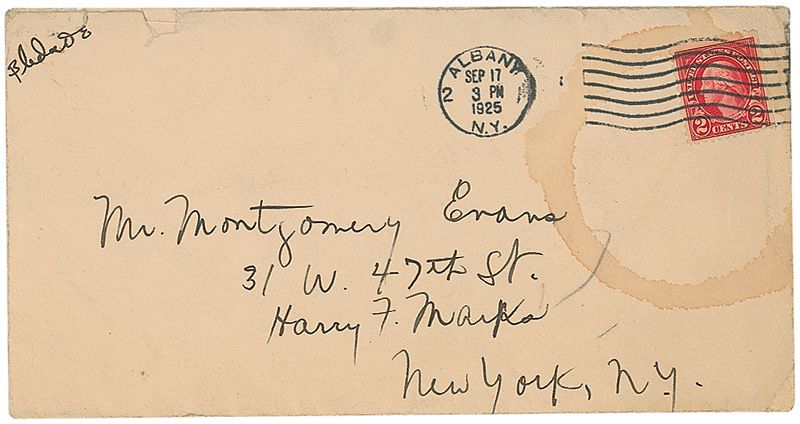 ALBANY
SEP 17
2 3 PM
1925
N.Y.
2 CENTS 2
Mr. Montgomery Evans
31 W. 47th St.
Harry F. Marks
New York, N.Y.